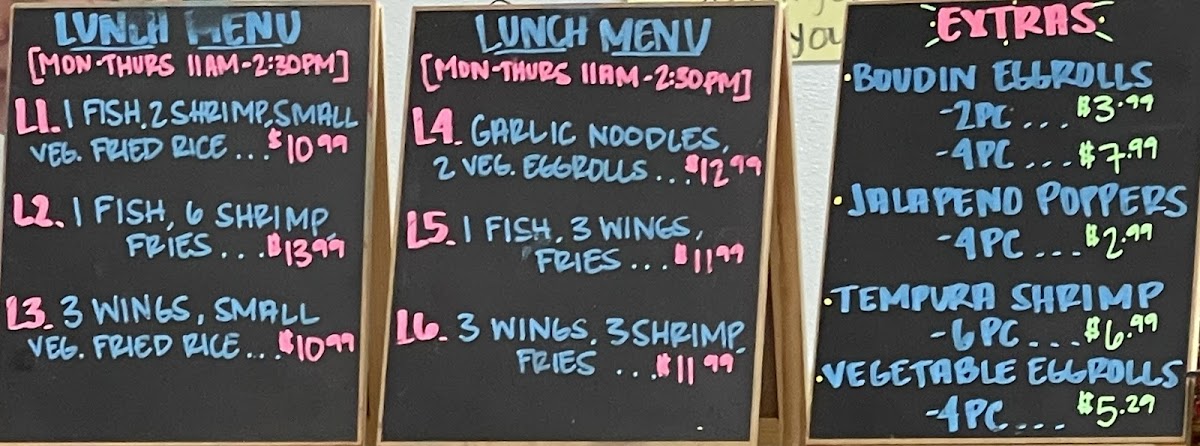 LUNCH MENU
[MON-THURS 11AM-2:30PM]
L1. 1 FISH, 2 SHRIMP, SMALL
VEG. FRIED RICE ... $10.99
L2. 1 FISH, 6 SHRIMP,
FRIES ... $13.99
L3. 3 WINGS, SMALL
VEG. FRIED RICE ... $10.99
LUNCH MENU
[MON-THURS 11AM-2:30PM]
L4. GARLIC NOODLES,
2 VEG. EGGROLLS ... $12.99
L5. 1 FISH, 3 WINGS,
FRIES ... $11.99
L6. 3 WINGS, 3 SHRIMP,
FRIES ... $11.99
you
EXTRAS
• BOUDIN EGGROLLS
-2PC ... $3.99
-4PC ... $7.99
• JALAPENO POPPERS
-4PC ... $2.99
• TEMPURA SHRIMP
-6PC ... $6.99
• VEGETABLE EGGROLLS
-4PC ... $5.29